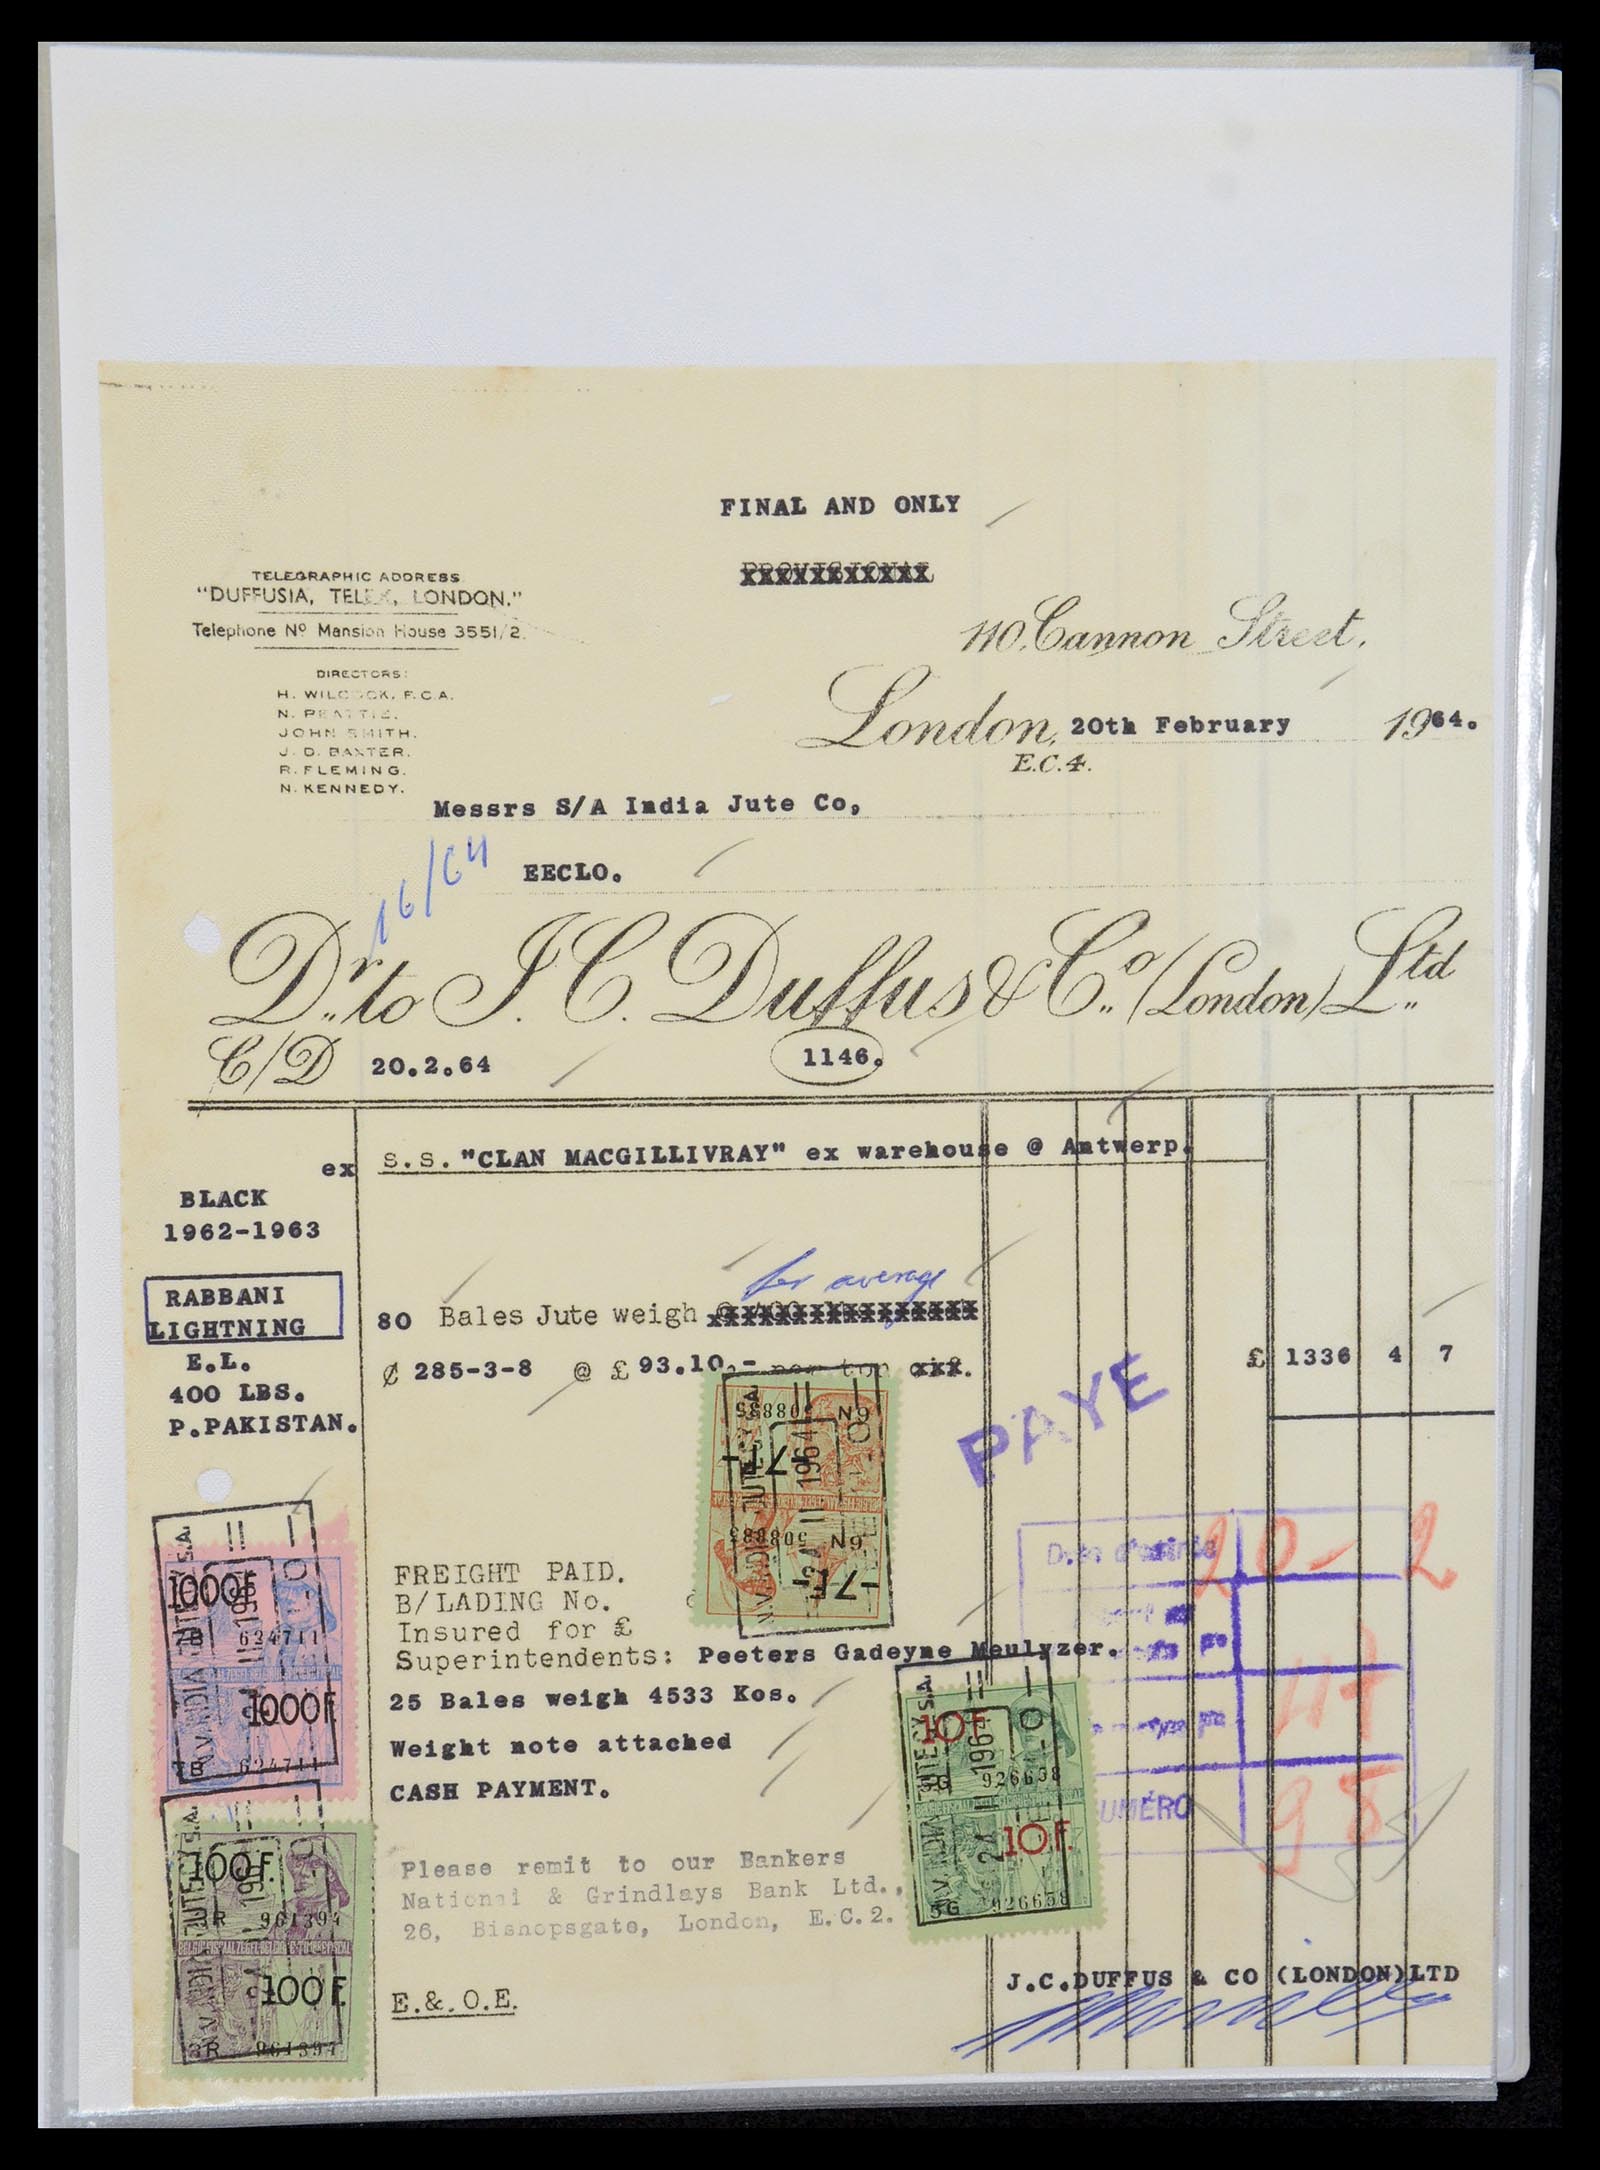 FINAL AND ONLY
TELEGRAPHIC ADDRESS
"DUFFUSIA, TELEX, LONDON."
Telephone Nº Mansion House 3551/2.
DIRECTORS:
H. WILCOCK, F.C.A.
N. BEATTIE.
JOHN SMITH.
J. D. BAXTER.
R. FLEMING.
N. KENNEDY.
PROVISIONAL
110, Cannon Street,
London, 20th February 1964.
E.C.4.
Messrs S/A India Jute Co,
16/64
EECLO.
Dr. to J. C. Duffus & Co. (London) Ltd.
C/D 20.2.64 1146.
ex S.S. "CLAN MACGILLIVRAY" ex warehouse @ Antwerp.
BLACK
1962-1963
RABBANI
LIGHTNING
E.L.
400 LBS.
P.PAKISTAN.
for average
80 Bales Jute weigh
₵ 285-3-8 @ £ 93.10.- per ton £ 1336 4 7
PAYE
6N 508885
7F
6N 508885
7F
N.V. INDIA JUTE CY S.A.
1000F
7B 624711
1000F
7B 624711
FREIGHT PAID.
B/LADING No.
Insured for £
Superintendents: Peeters Gadeyne Meulyzer.
25 Bales weigh 4533 Kos.
Weight note attached
CASH PAYMENT.
20-2
NUMÉRO 98
10F
5G 926658
10F.
5G 926658
N.V. INDIA JUTE CY S.A.
24 II 1964
100F.
3R 961394
100F.
3R 961394
Please remit to our Bankers
National & Grindlays Bank Ltd.,
26, Bishopsgate, London, E.C.2.
E.&.O.E.
J.C.DUFFUS & CO (LONDON)LTD